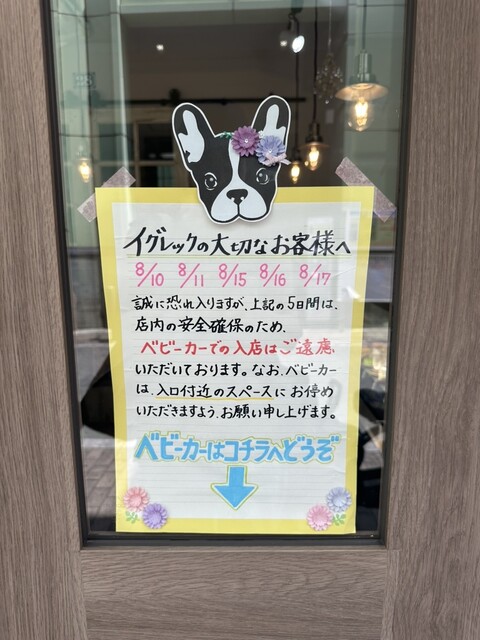 イグレックの大切なお客様へ
8/10 8/11 8/15 8/16 8/17
誠に恐れ入りますが、上記の5日間は、
店内の安全確保のため、
ベビーカーでの入店はご遠慮
いただいております。なお、ベビーカー
は、入口付近のスペースにお停め
いただきますよう、お願い申し上げます。
ベビーカーはコチラへどうぞ